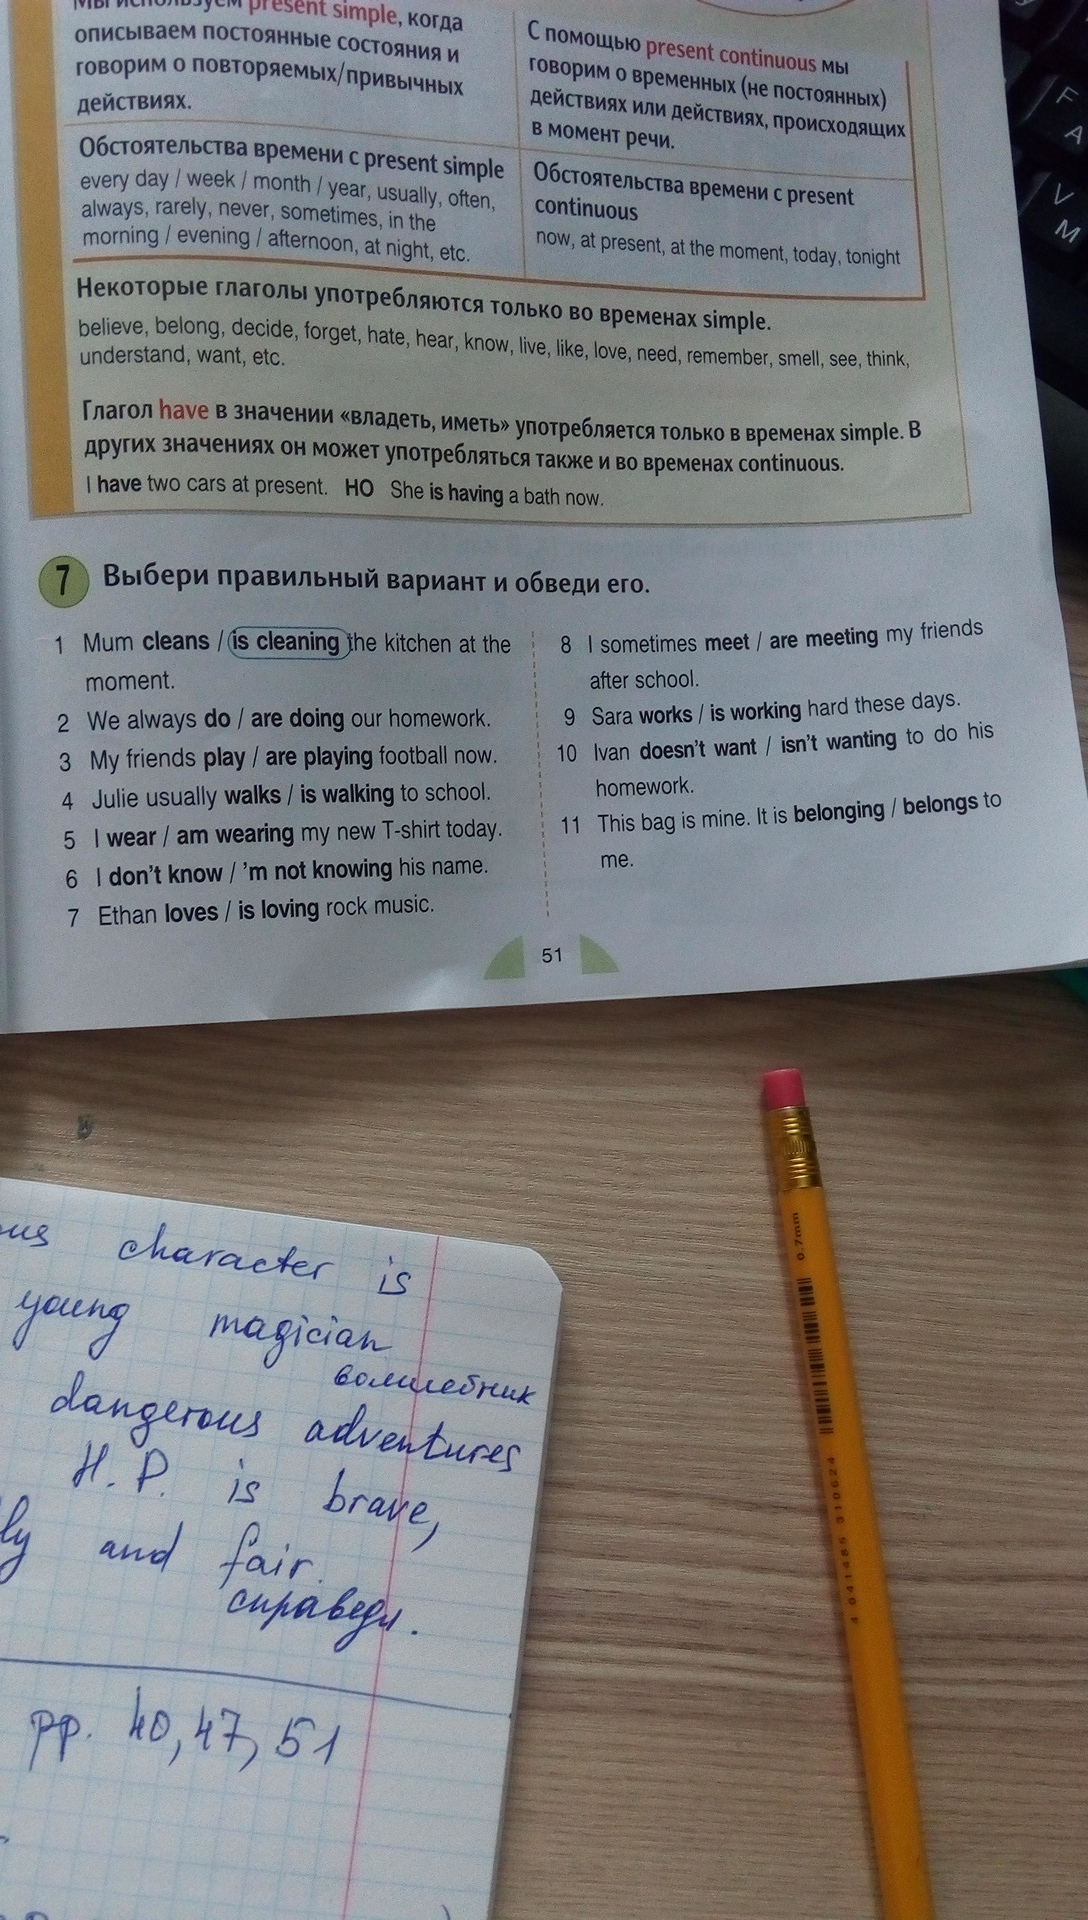 Мы используем present simple, когда
описываем постоянные состояния и
говорим о повторяемых/привычных
действиях.
С помощью present continuous мы
говорим о временных (не постоянных)
действиях или действиях, происходящих
в момент речи.
Обстоятельства времени с present simple
every day / week / month / year, usually, often,
always, rarely, never, sometimes, in the
morning / evening / afternoon, at night, etc.
Обстоятельства времени с present
continuous
now, at present, at the moment, today, tonight
Некоторые глаголы употребляются только во временах simple.
believe, belong, decide, forget, hate, hear, know, live, like, love, need, remember, smell, see, think,
understand, want, etc.
Глагол have в значении «владеть, иметь» употребляется только в временах simple. В
других значениях он может употребляться также и во временах continuous.
I have two cars at present. НО She is having a bath now.
7 Выбери правильный вариант и обведи его.
1 Mum cleans / is cleaning the kitchen at the
moment.
2 We always do / are doing our homework.
3 My friends play / are playing football now.
4 Julie usually walks / is walking to school.
5 I wear / am wearing my new T-shirt today.
6 I don't know / 'm not knowing his name.
7 Ethan loves / is loving rock music.
8 I sometimes meet / are meeting my friends
after school.
9 Sara works / is working hard these days.
10 Ivan doesn't want / isn't wanting to do his
homework.
11 This bag is mine. It is belonging / belongs to
me.
51
F
A
V
M
character is
young magician
волшебник
dangerous adventures
H. P. is brave,
and fair.
справедл.
pp. 40, 47, 51
0.7mm
4 041485 310624